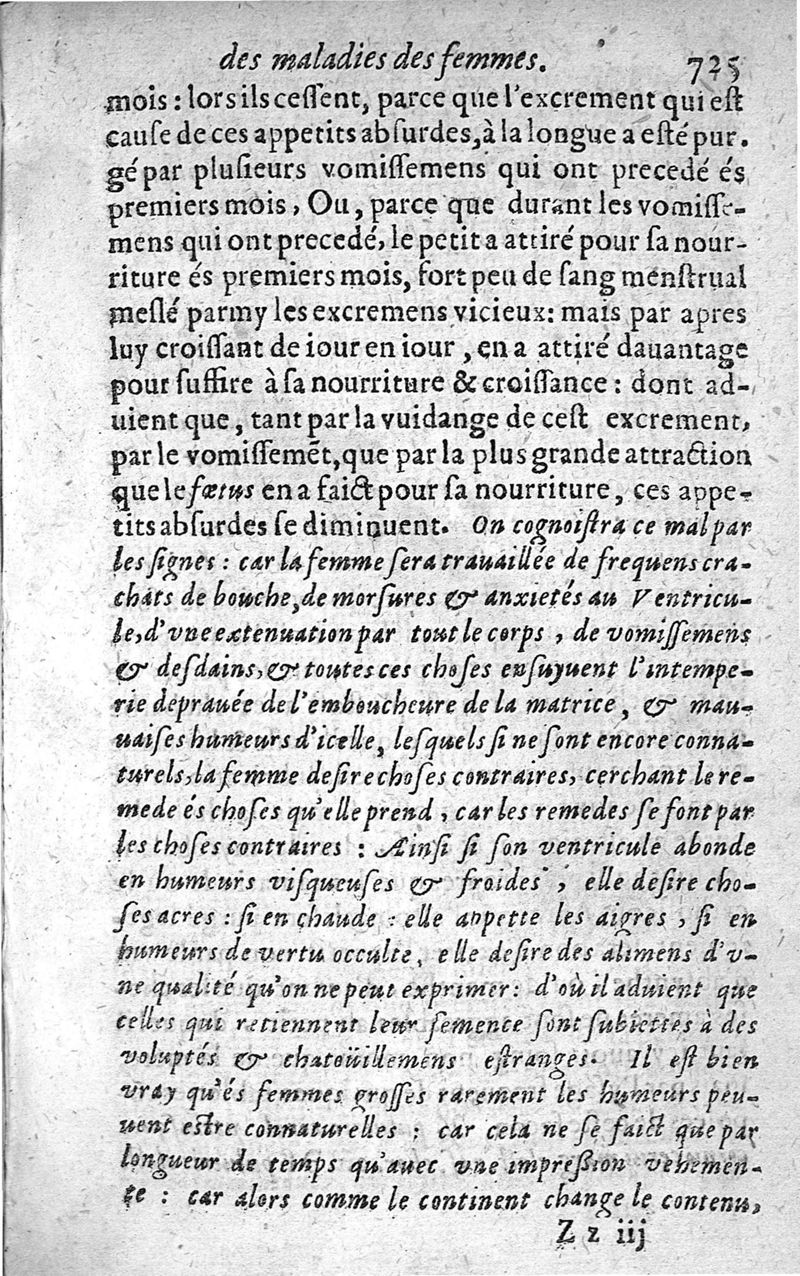 des maladies des femmes. 725
mois : lors ils ceſſent, parce que l'excrement qui eſt
cauſe de ces appetits abſurdes, à la longue a eſté pur.
gé par pluſieurs vomiſſemens qui ont precedé és
premiers mois, Ou, parce que durant les vomiſſe-
mens qui ont precedé, le petit a attiré pour ſa nour-
riture és premiers mois, fort peu de ſang menſtrual
meſlé parmy les excremens vicieux: mais par apres
luy croiſſant de iour en iour, en a attiré dauantage
pour ſuffire à ſa nourriture & croiſſance : dont ad-
uient que, tant par la vuidange de ceſt excrement,
par le vomiſſemēt, que par la plus grande attraction
que le fœtus en a faict pour ſa nourriture, ces appe-
tits abſurdes ſe diminuent. On cognoiſtra ce mal par
les ſignes : car la femme ſera trauaillée de frequens cra-
chats de bouche, de morſures & anxietés au Ventricu-
le, d'vne extenuation par tout le corps, de vomiſſemens
& deſdains, & toutes ces choſes enſuyuent l'intempe-
rie deprauée de l'emboucheure de la matrice, & mau-
uaiſes humeurs d'icelle, leſquels ſi ne ſont encore conna-
turels, la femme deſire choſes contraires, cerchant le re-
mede és choſes qu'elle prend, car les remedes ſe font par
les choſes contraires : Ainſi ſi ſon ventricule abonde
en humeurs viſqueuſes & froides, elle deſire cho-
ſes acres : ſi en chaude : elle appette les aigres, ſi en
humeurs de vertu occulte, elle deſire des alimens d'v-
ne qualité qu'on ne peut exprimer : d'où il aduient que
celles qui retiennent leur ſemence ſont ſubiettes à des
voluptés & chatoüillemens eſtranges. Il eſt bien
vray qu'és femmes groſſes rarement les humeurs peu-
uent eſtre connaturelles : car cela ne ſe faict que par
longueur de temps qu'auec vne impreſsion vehemen-
te : car alors comme le continent change le contenu,
Z z iij